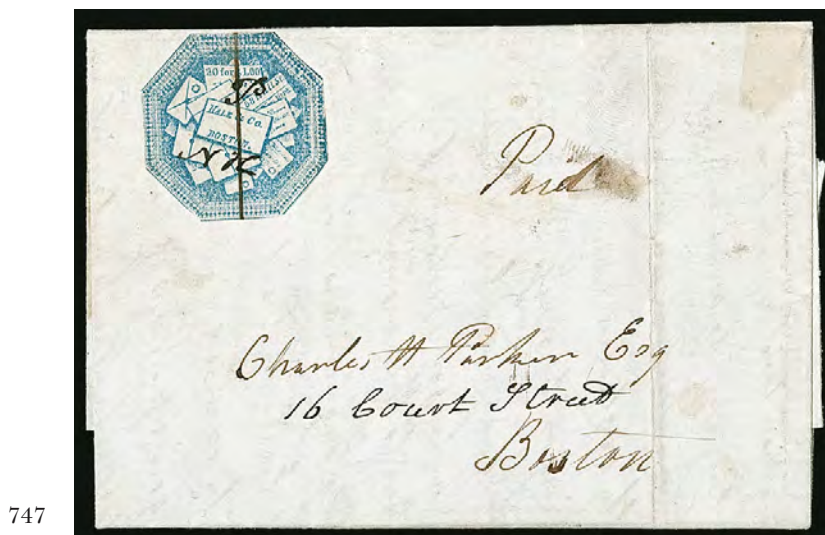 20 for $1.00
HALE & Co.
BOSTON.
NH
Paid
Charles H Parker Esq
16 Court Street
Boston
747